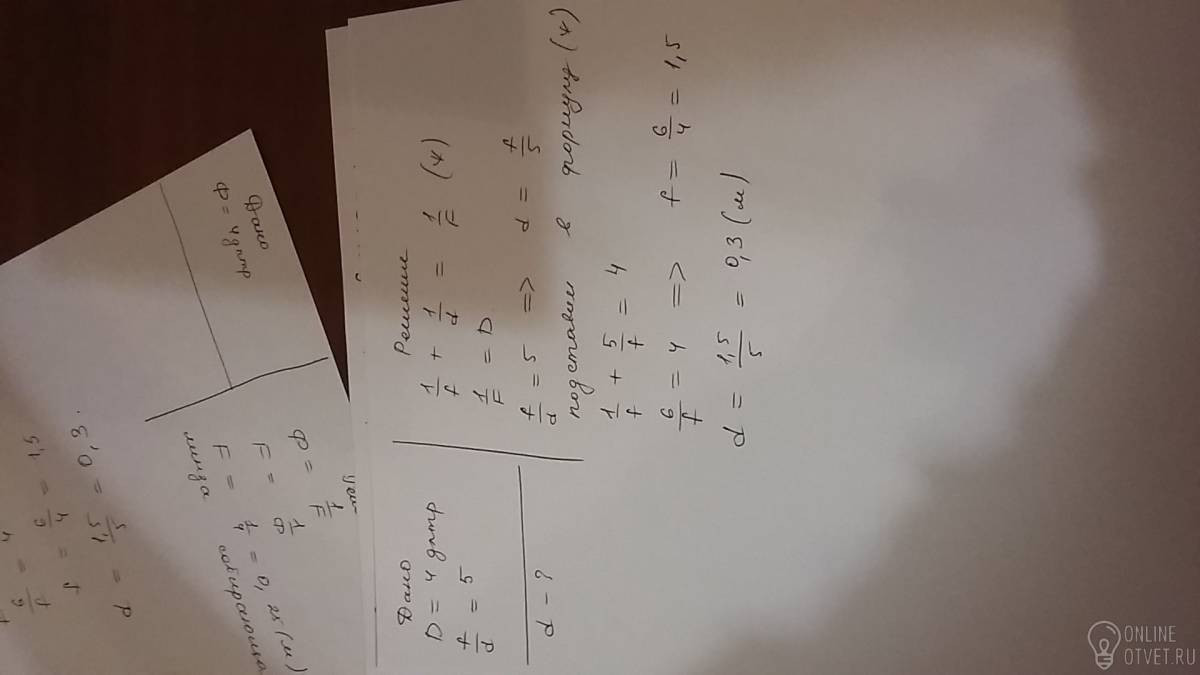 Дано
D = 4 дптр
f/d = 5
d - ?
Решение
1/f + 1/d = 1/F (*)
1/F = D
f/d = 5 => d = f/5
подставим в формулу (*)
1/f + 5/f = 4
6/f = 4 => f = 6/4 = 1,5
d = 1,5/5 = 0,3 (м)
Дано
Ф = 4 дптр
Ф = 1/F
F = 1/Ф
F = 1/4 = 0,25 (м)
линза собирающая
6/f = 4
f = 6/4 = 1,5
d = 1,5/5 = 0,3.
ONLINE
OTVET.RU